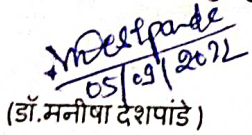 mDeshpande
05/09/2022
(डॉ.मनीषा देशपांडे)